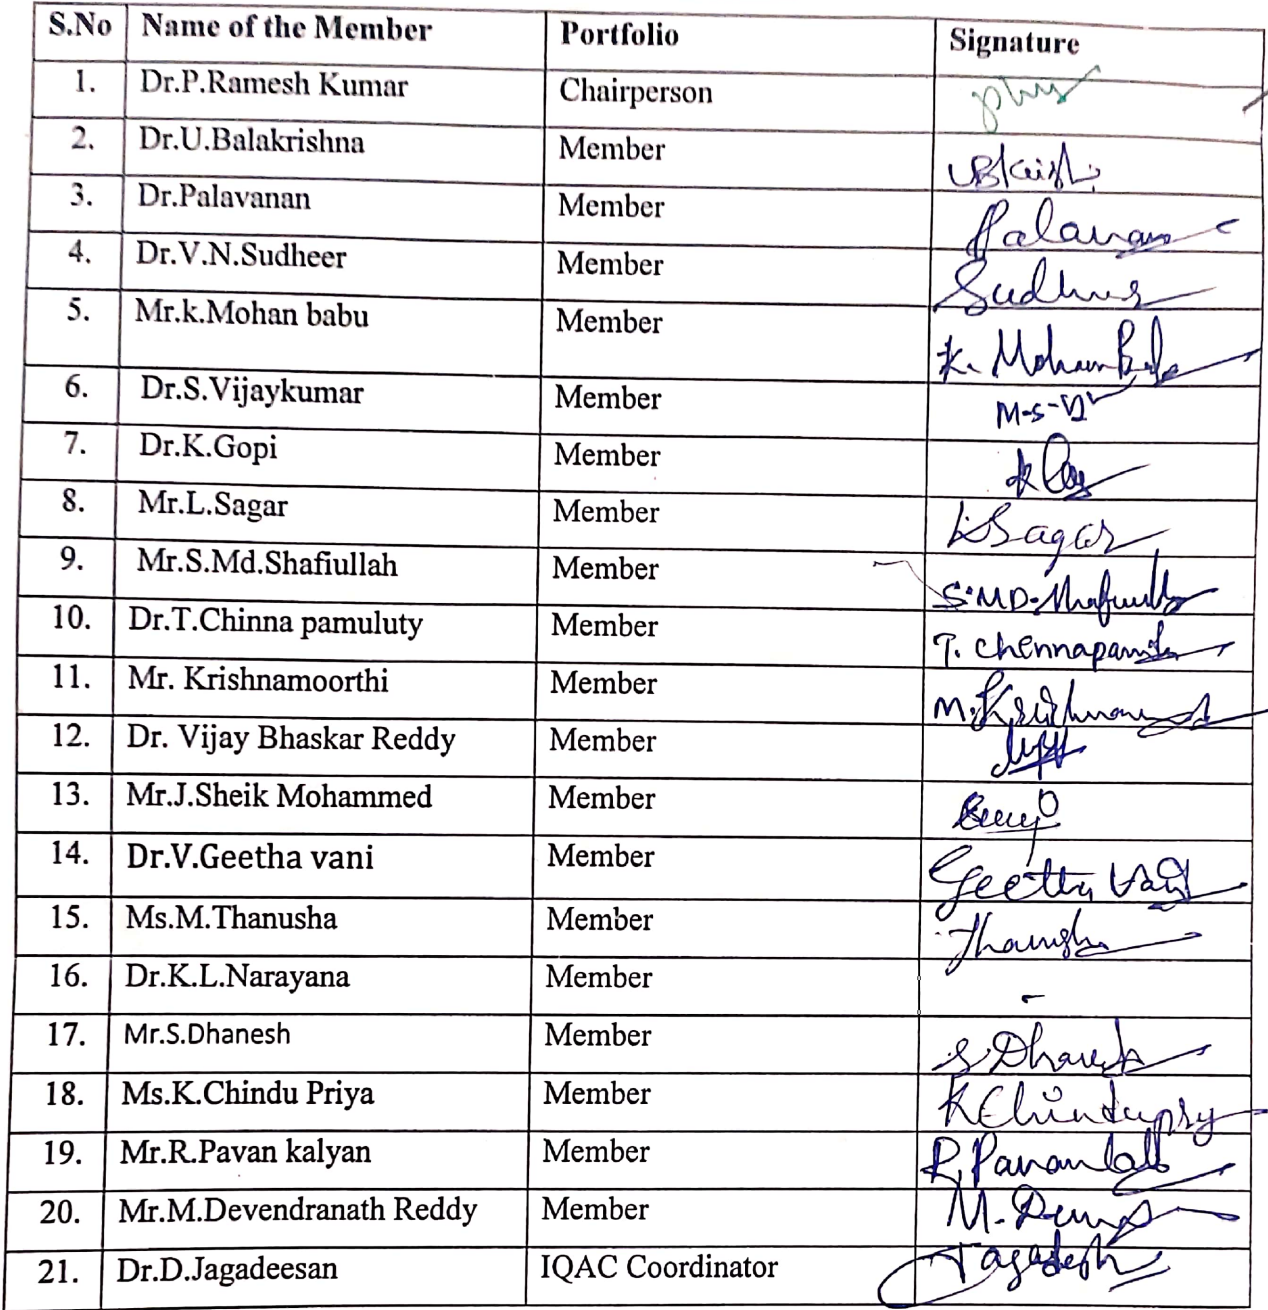 S.No Name of the Member Portfolio Signature
1. Dr.P.Ramesh Kumar Chairperson
2. Dr.U.Balakrishna Member
3. Dr.Palavanan Member Palavan
4. Dr.V.N.Sudheer Member
5. Mr.k.Mohan babu Member K. Mohan
6. Dr.S.Vijaykumar Member
7. Dr.K.Gopi Member
8. Mr.L.Sagar Member L.Sagar
9. Mr.S.Md.Shafiullah Member S.MD.
10. Dr.T.Chinna pamuluty Member T.
11. Mr. Krishnamoorthi Member M.
12. Dr. Vijay Bhaskar Reddy Member
13. Mr.J.Sheik Mohammed Member
14. Dr.V.Geetha vani Member Geetha Vani
15. Ms.M.Thanusha Member
16. Dr.K.L.Narayana Member -
17. Mr.S.Dhanesh Member S.Dhanesh
18. Ms.K.Chindu Priya Member
19. Mr.R.Pavan kalyan Member
20. Mr.M.Devendranath Reddy Member
21. Dr.D.Jagadeesan IQAC Coordinator